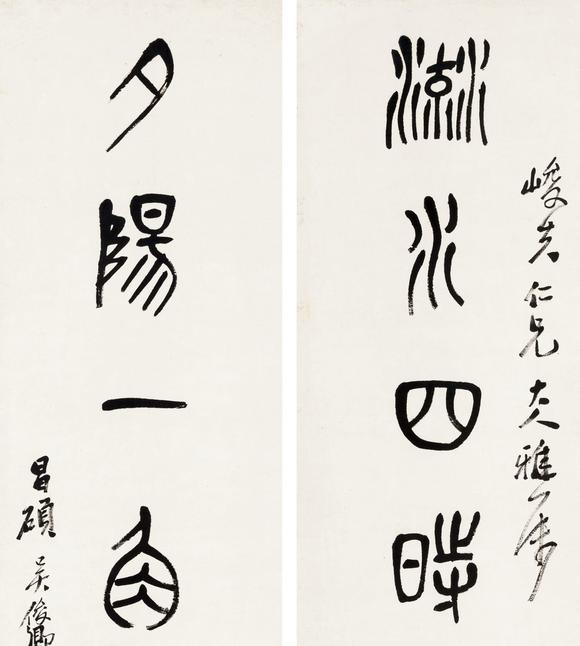 峻夫仁兄大人雅屬
流水四時
夕陽一角
昌碩吳俊卿